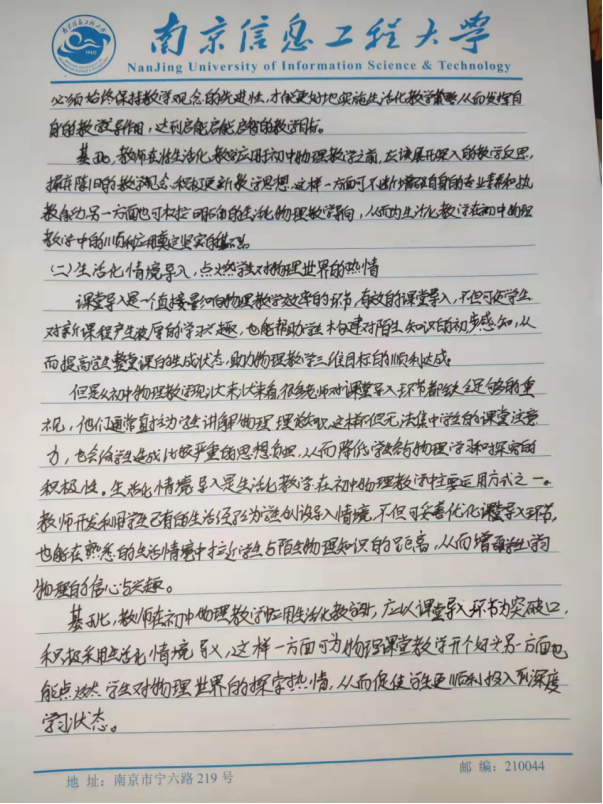 南京信息工程大学
NanJing University of Information Science & Technology
必须始终保持教学观念的先进性，才能更好地实施生活化教学策略，从而发挥自
身的教学导作用，达到启能启智的教学目标。
基于此，教师在将生活化教学应用于初中物理教学之前，应该展开深入的教学反思，
摒弃陈旧的教学观念，积极更新教学思想，这样一方面可不断增强自身的专业素养和执
教能力，另一方面也可树立明确的生活化物理教学导向，从而为生活化教学在初中物理
教学中的顺利应用奠定坚实的基础。
(二)生活化情境导入，点燃学生对物理世界的热情
课堂导入是一个直接影响物理教学效率的环节，有效的课堂导入，不但可使学生
对新课程产生浓厚的学习兴趣，也能帮助学生构建对陌生知识的初步感知，从
而提高学生整堂课的生成状态，助力物理教学三维目标的顺利达成。
但是从初中物理教学现状来看，很多老师对课堂导入环节都缺乏足够的重
视，他们通常直接为学生讲解物理理论知识，这样不但无法集中学生的课堂注意
力，也会给学生造成比较严重的思想负担，从而降低学生参与物理学习和探究的
积极性。生活化情境导入是生活化教学在初中物理教学中主要运用方式之一。
教师开发利用学生已有的生活经验为学生创设导入情境，不但可妥善优化课堂导入环节，
也能在熟悉的生活情境中拉近学生与陌生物理知识的距离，从而增强学生学习
物理的信心与兴趣。
基于此，教师在初中物理教学中应用生活化教学时，应以课堂导入环节为突破口，
积极采用生活化情境导入，这样一方面可为物理课堂教学开个好头，另一方面也
能点燃学生对物理世界的探索热情，从而促使学生更顺利投入到深度
学习状态。
地 址：南京市宁六路 219 号
邮 编：210044